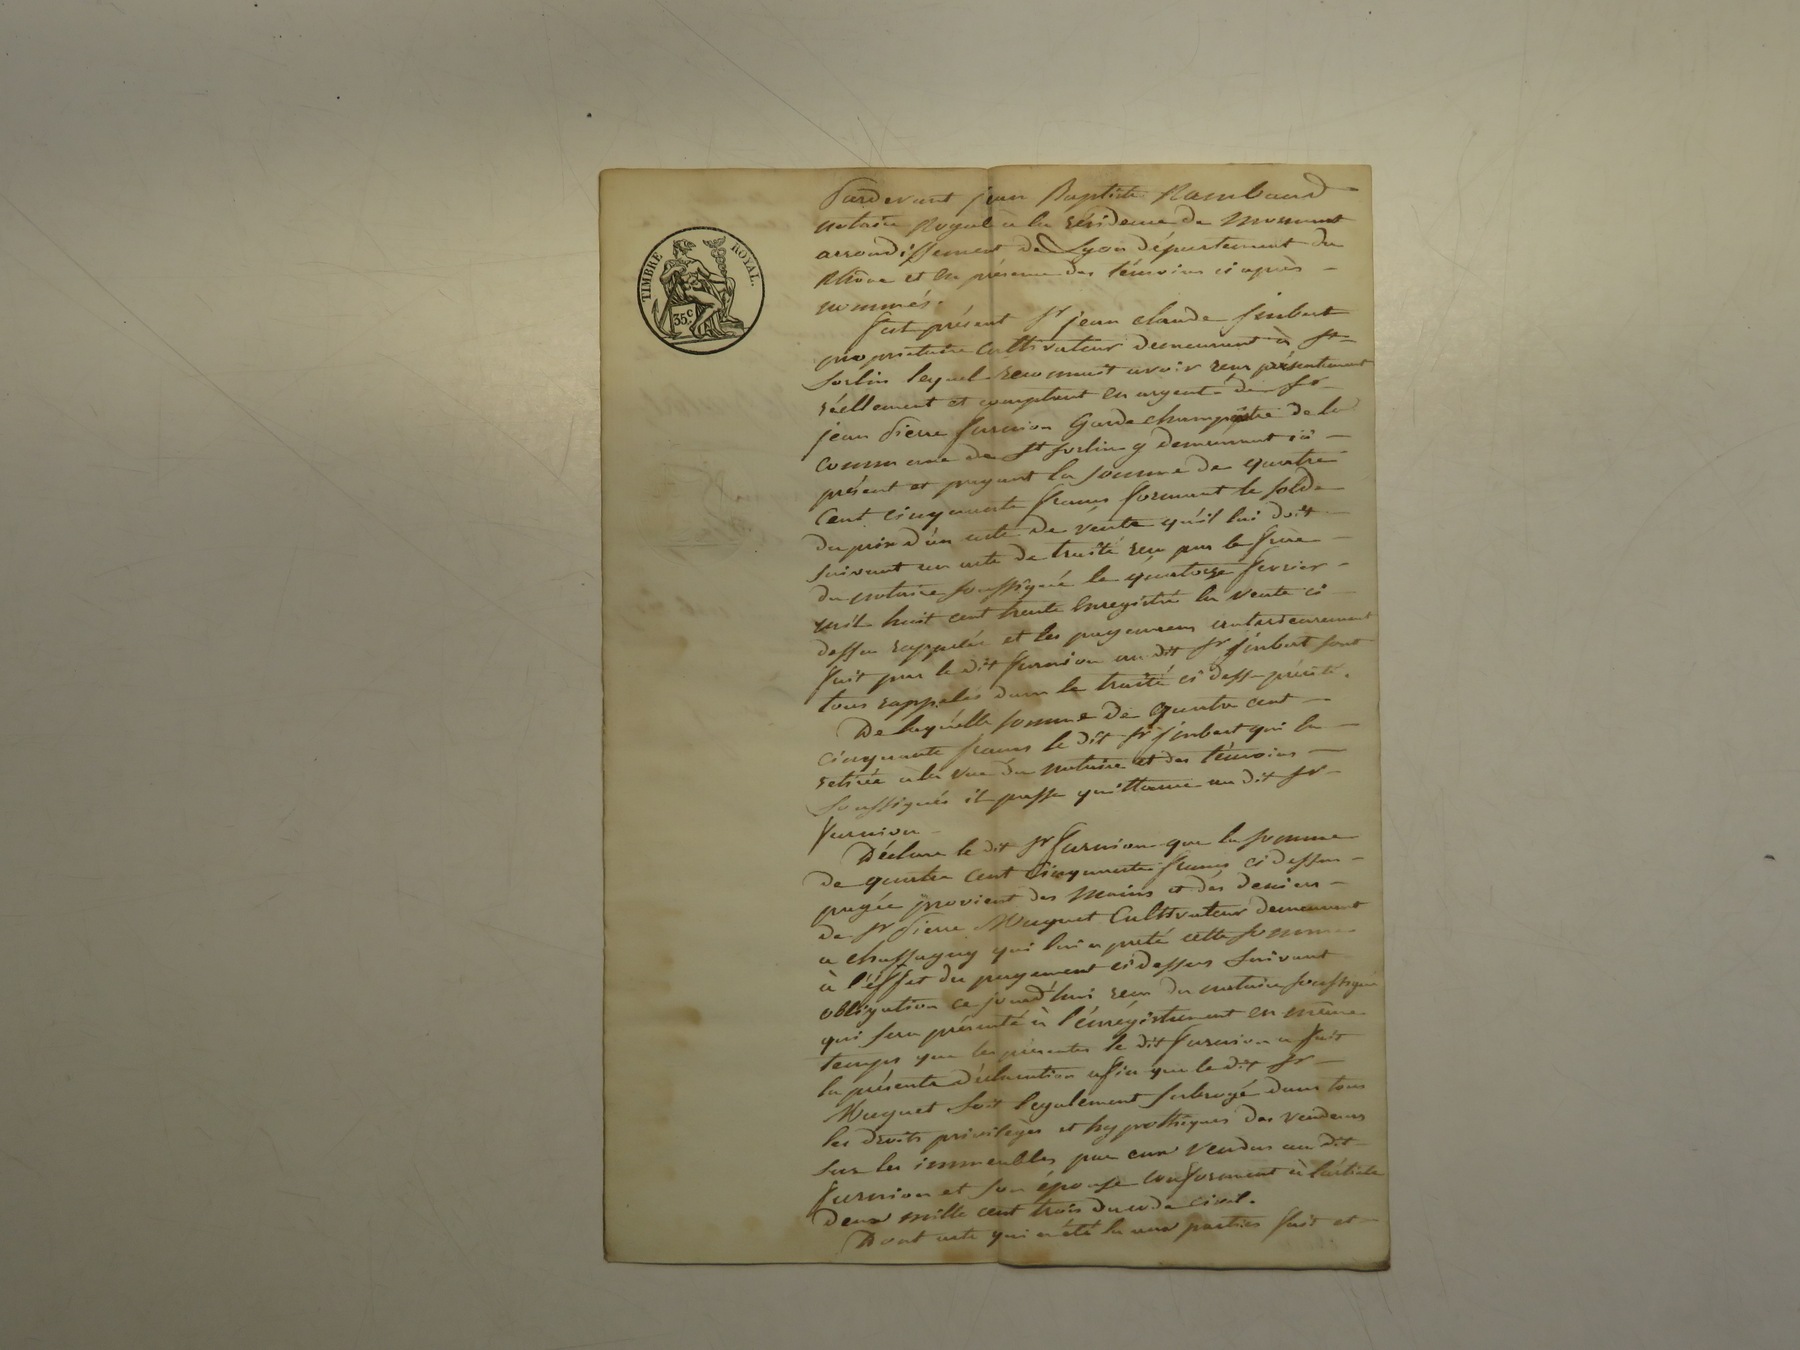 TIMBRE ROYAL.
35 c.
Pardevant jean Baptiste Rambaud
notaire Royal à la résidence de Mornant
arrondissement de Lyon département du
Rhône et en présence des témoins ci après
nommés.
fut présent Sr jean claude jimbert
propriétaire cultivateur demeurant à St
Sorlin lequel reconnait avoir reçu présentement
réellement et comptant en argent du Sr
jean Pierre furnion Garde champêtre de la
commune de St Sorlin y demeurant ici
présent et payant la somme de quatre
cent cinquante francs formant le solde
du prix d'un acte de vente qu'il lui doit
suivant un acte de traité reçu par le frère
du notaire soussigné le quatorze fevrier
mil huit cent trente Enregistré la vente ci
dessu rappelée et les payemens antérieurement
fait par le dit furnion au dit Sr jimbert sont
tous rappelés dans le traité ci dessu précité.
De laquelle somme de quatre cent
cinquante francs le dit Sr jimbert qui la
retirée à la vue du notaire et des témoins
soussignés il passe quittance au dit Sr
furnion
Déclare le dit Sr furnion que la somme
de quatre cent cinquante francs ci dessus
payée provient des mains et des deniers
de Sr Pierre Muguet Cultivateur demeurant
a chassagny qui lui a preté cette somme
à l'éffet du payement ci dessus suivant
obligation ce jourd'hui reçu du notaire soussigné
qui sera présenté à l'énregistrement en même
temps que les présentes le dit furnion a fait
la présente déclaration afin que le dit Sr
Muguet soit légalement subrogé dans tous
les droits privilèges et hypothèques des vendeurs
sur les immeubles par eux vendus au dit
furnion et son épouse conforment à l'article
deux mille cent trois du code civil.
Dont acte qui a été lu aux parties fait et